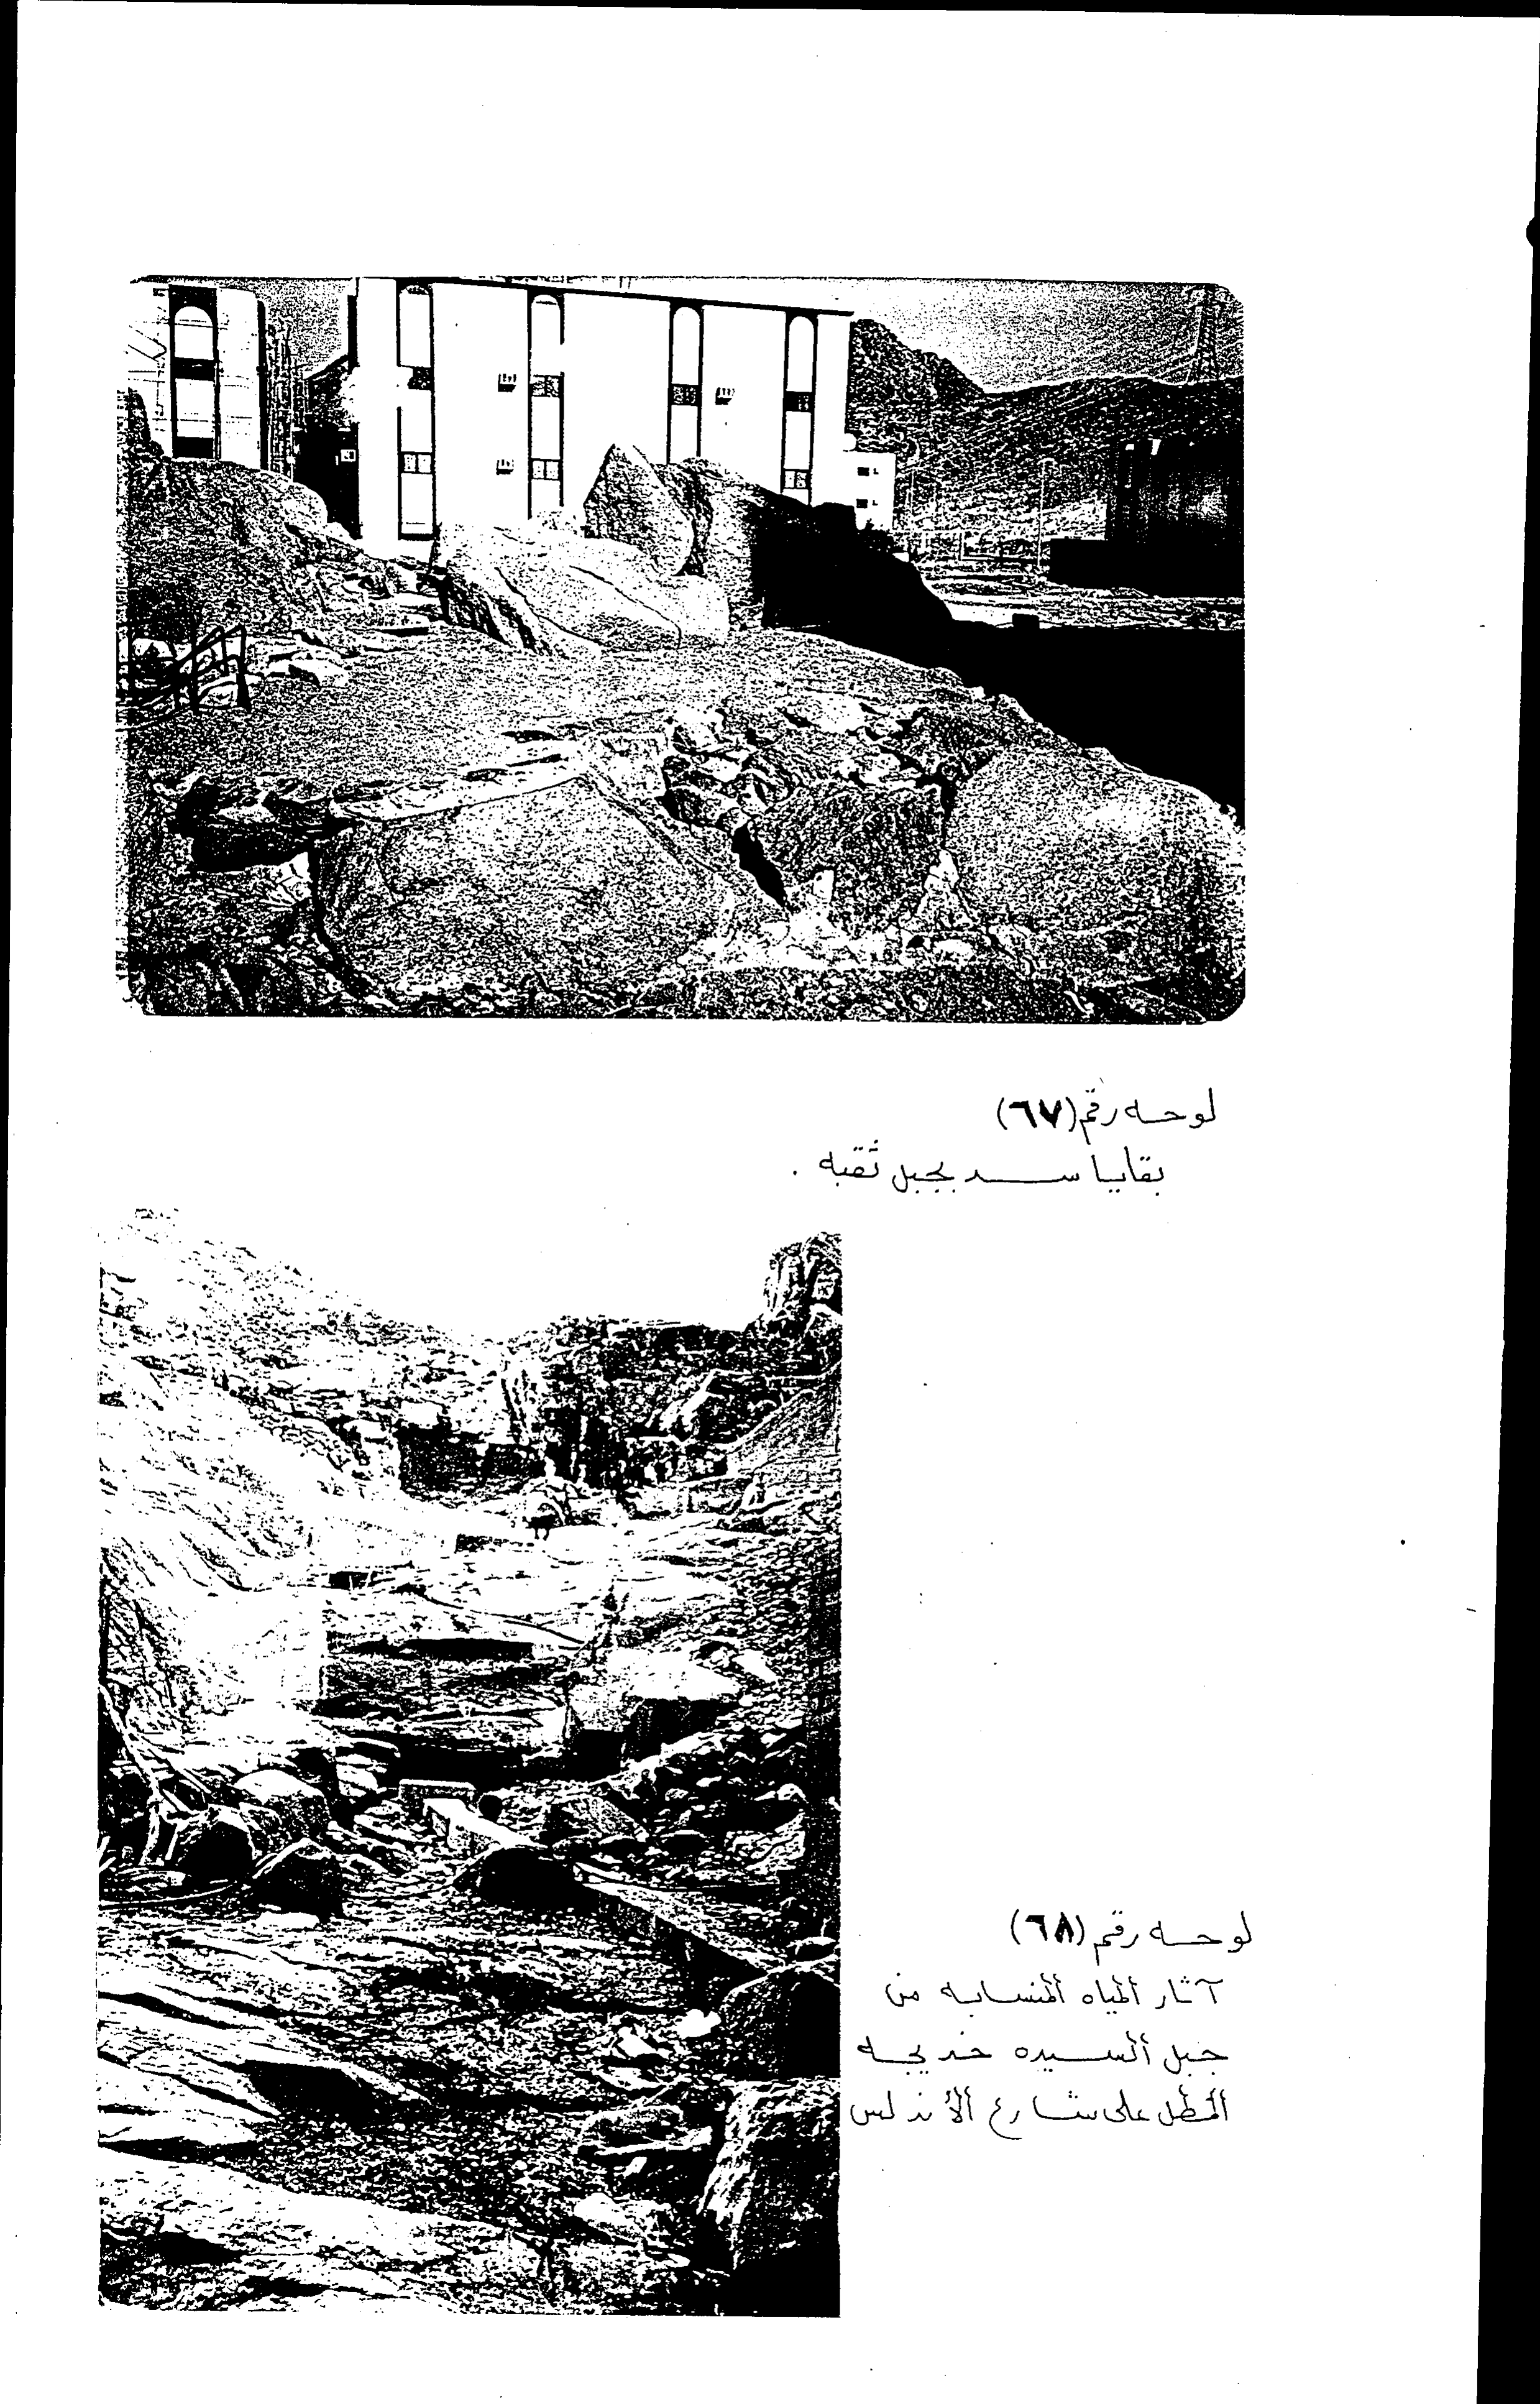 لوحه رقم (٦٧)
بقايا سد بجبل ثقبه .
لوحه رقم (٦٨)
آثار المياه المنسابه من
جبل السيده خديجه
المطل على شارع الأندلس